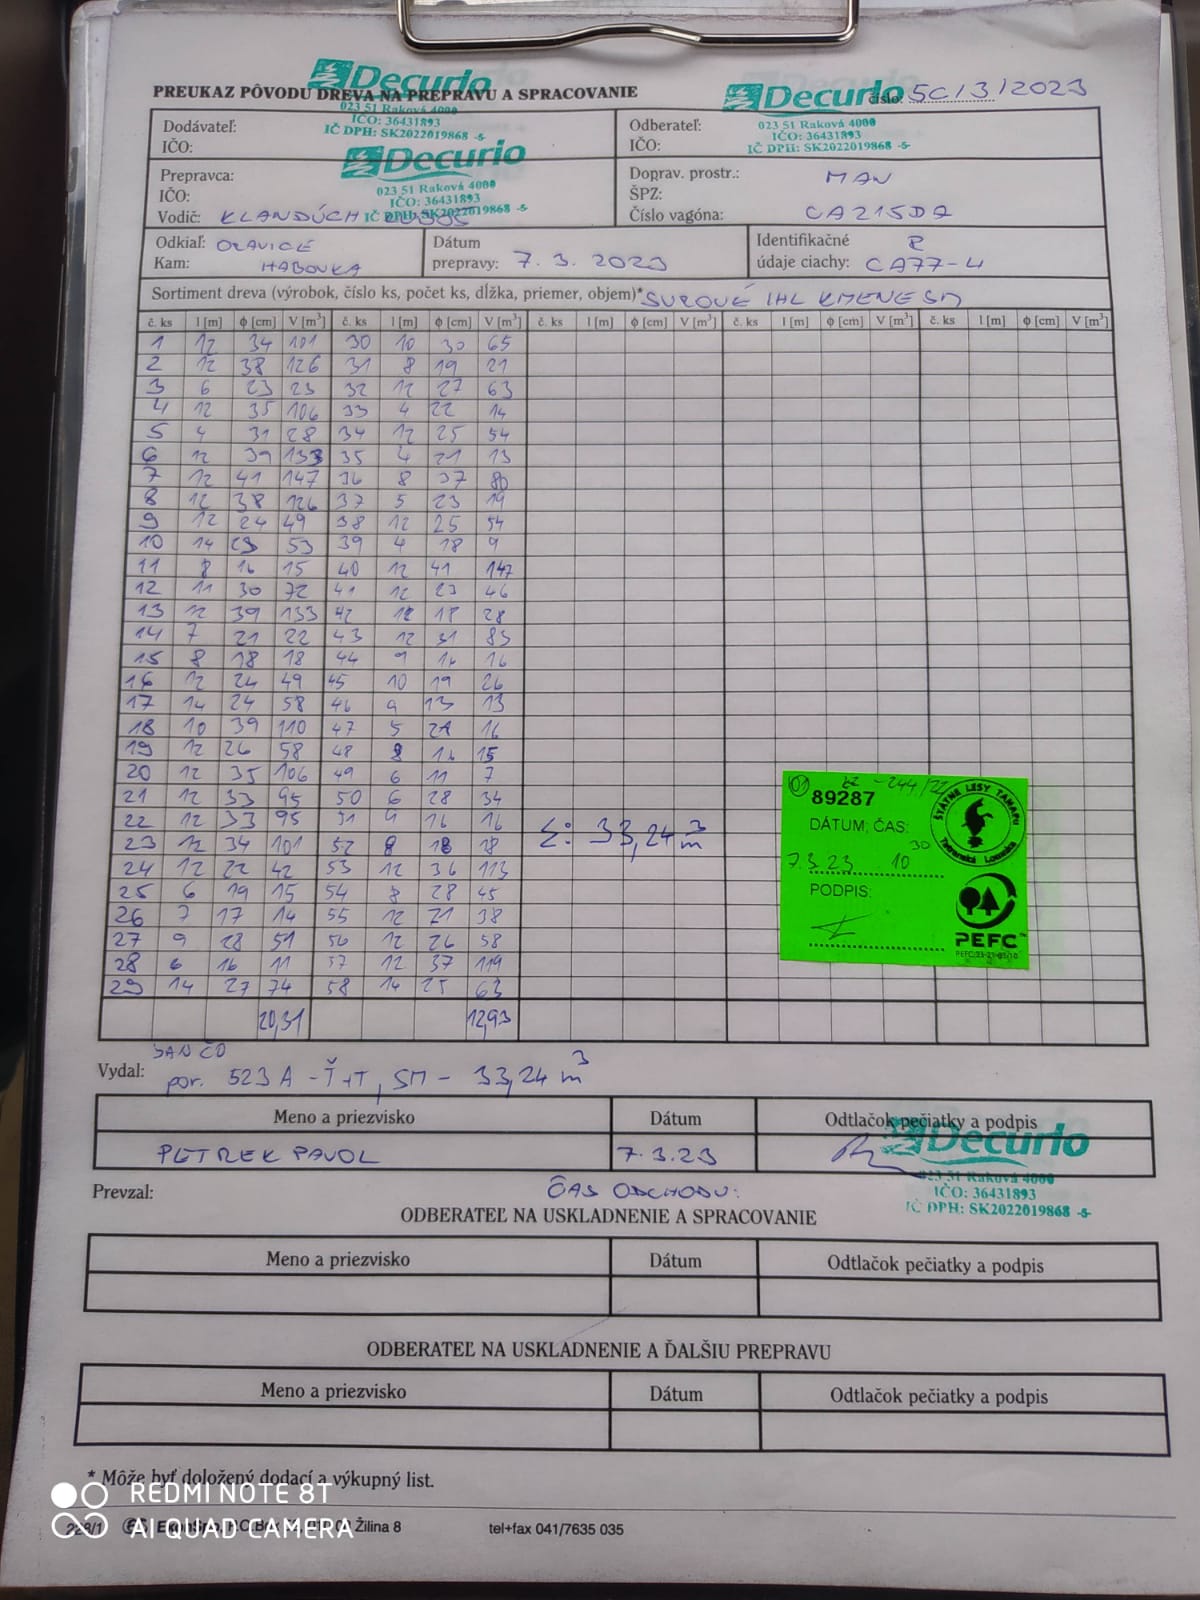 Decurio
Decurio
PREUKAZ PÔVODU DREVA NA PREPRAVU A SPRACOVANIE
číslo: 5C/3/2023
023 51 Raková 4000
IČO: 36431893
IČ DPH: SK2022019868 -5-
023 51 Raková 4000
IČO: 36431893
IČ DPH: SK2022019868 -5-
Dodávateľ:
IČO:
Odberateľ:
IČO:
Decurio
023 51 Raková 4000
IČO: 36431893
IČ DPH: SK2022019868 -5-
Prepravca:
IČO:
Vodič: KLANDÚCH
Doprav. prostr.: MAN
ŠPZ:
Číslo vagóna: CA215DA
Odkiaľ: ORAVICE
Kam: HABOVKA
Dátum
prepravy: 7. 3. 2023
Identifikačné R
údaje ciachy: CA77-4
Sortiment dreva (výrobok, číslo ks, počet ks, dĺžka, priemer, objem)* SUROVÉ IHL KMENE SM
č. ks l [m] ϕ [cm] V [m³] č. ks l [m] ϕ [cm] V [m³] č. ks l [m] ϕ [cm] V [m³] č. ks l [m] ϕ [cm] V [m³] č. ks l [m] ϕ [cm] V [m³]
1 12 34 101 30 10 30 65
2 12 38 126 31 8 19 21
3 6 23 23 32 12 27 63
4 12 35 106 33 4 22 14
5 4 31 28 34 12 25 54
6 12 39 133 35 4 21 13
7 12 41 147 36 8 37 80
8 12 38 126 37 5 23 19
9 12 24 49 38 12 25 54
10 14 23 53 39 4 18 9
11 8 16 15 40 12 41 147
12 11 30 72 41 12 23 46
13 12 39 133 42 12 18 28
14 7 21 22 43 12 31 83
15 8 18 18 44 9 16 16
16 12 24 49 45 10 19 26
17 14 24 58 46 9 13 13
18 10 39 110 47 5 21 16
19 12 26 58 48 8 16 15
20 12 35 106 49 6 11 7
21 12 33 95 50 6 28 34
22 12 33 95 51 9 16 16
23 12 34 101 52 8 18 18
24 12 22 42 53 12 36 113
25 6 19 15 54 8 28 45
26 7 17 14 55 12 21 38
27 9 28 51 56 12 26 58
28 6 16 11 57 12 37 119
29 14 27 74 58 14 25 63
20,31 12,93
Σ: 33,24 m³
01
89287
DÁTUM, ČAS:
7.3.23 10 30
PODPIS:
ŠTÁTNE LESY TANAPU
Tatranská Lomnica
PEFC
Vydal: JANČO
por. 523 A - Ť+T, SM - 33,24 m³
Meno a priezvisko Dátum Odtlačok pečiatky a podpis
PETREK PAVOL 7.3.23
Decurio
023 51 Raková 4000
IČO: 36431893
IČ DPH: SK2022019868 -5-
Prevzal: ČAS ODCHODU:
ODBERATEĽ NA USKLADNENIE A SPRACOVANIE
Meno a priezvisko Dátum Odtlačok pečiatky a podpis
ODBERATEĽ NA USKLADNENIE A ĎALŠIU PREPRAVU
Meno a priezvisko Dátum Odtlačok pečiatky a podpis
* Môže byť doložený dodací a výkupný list.
REDMI NOTE 8T
AI QUAD CAMERA
228/1 Žilina 8 tel+fax 041/7635 035